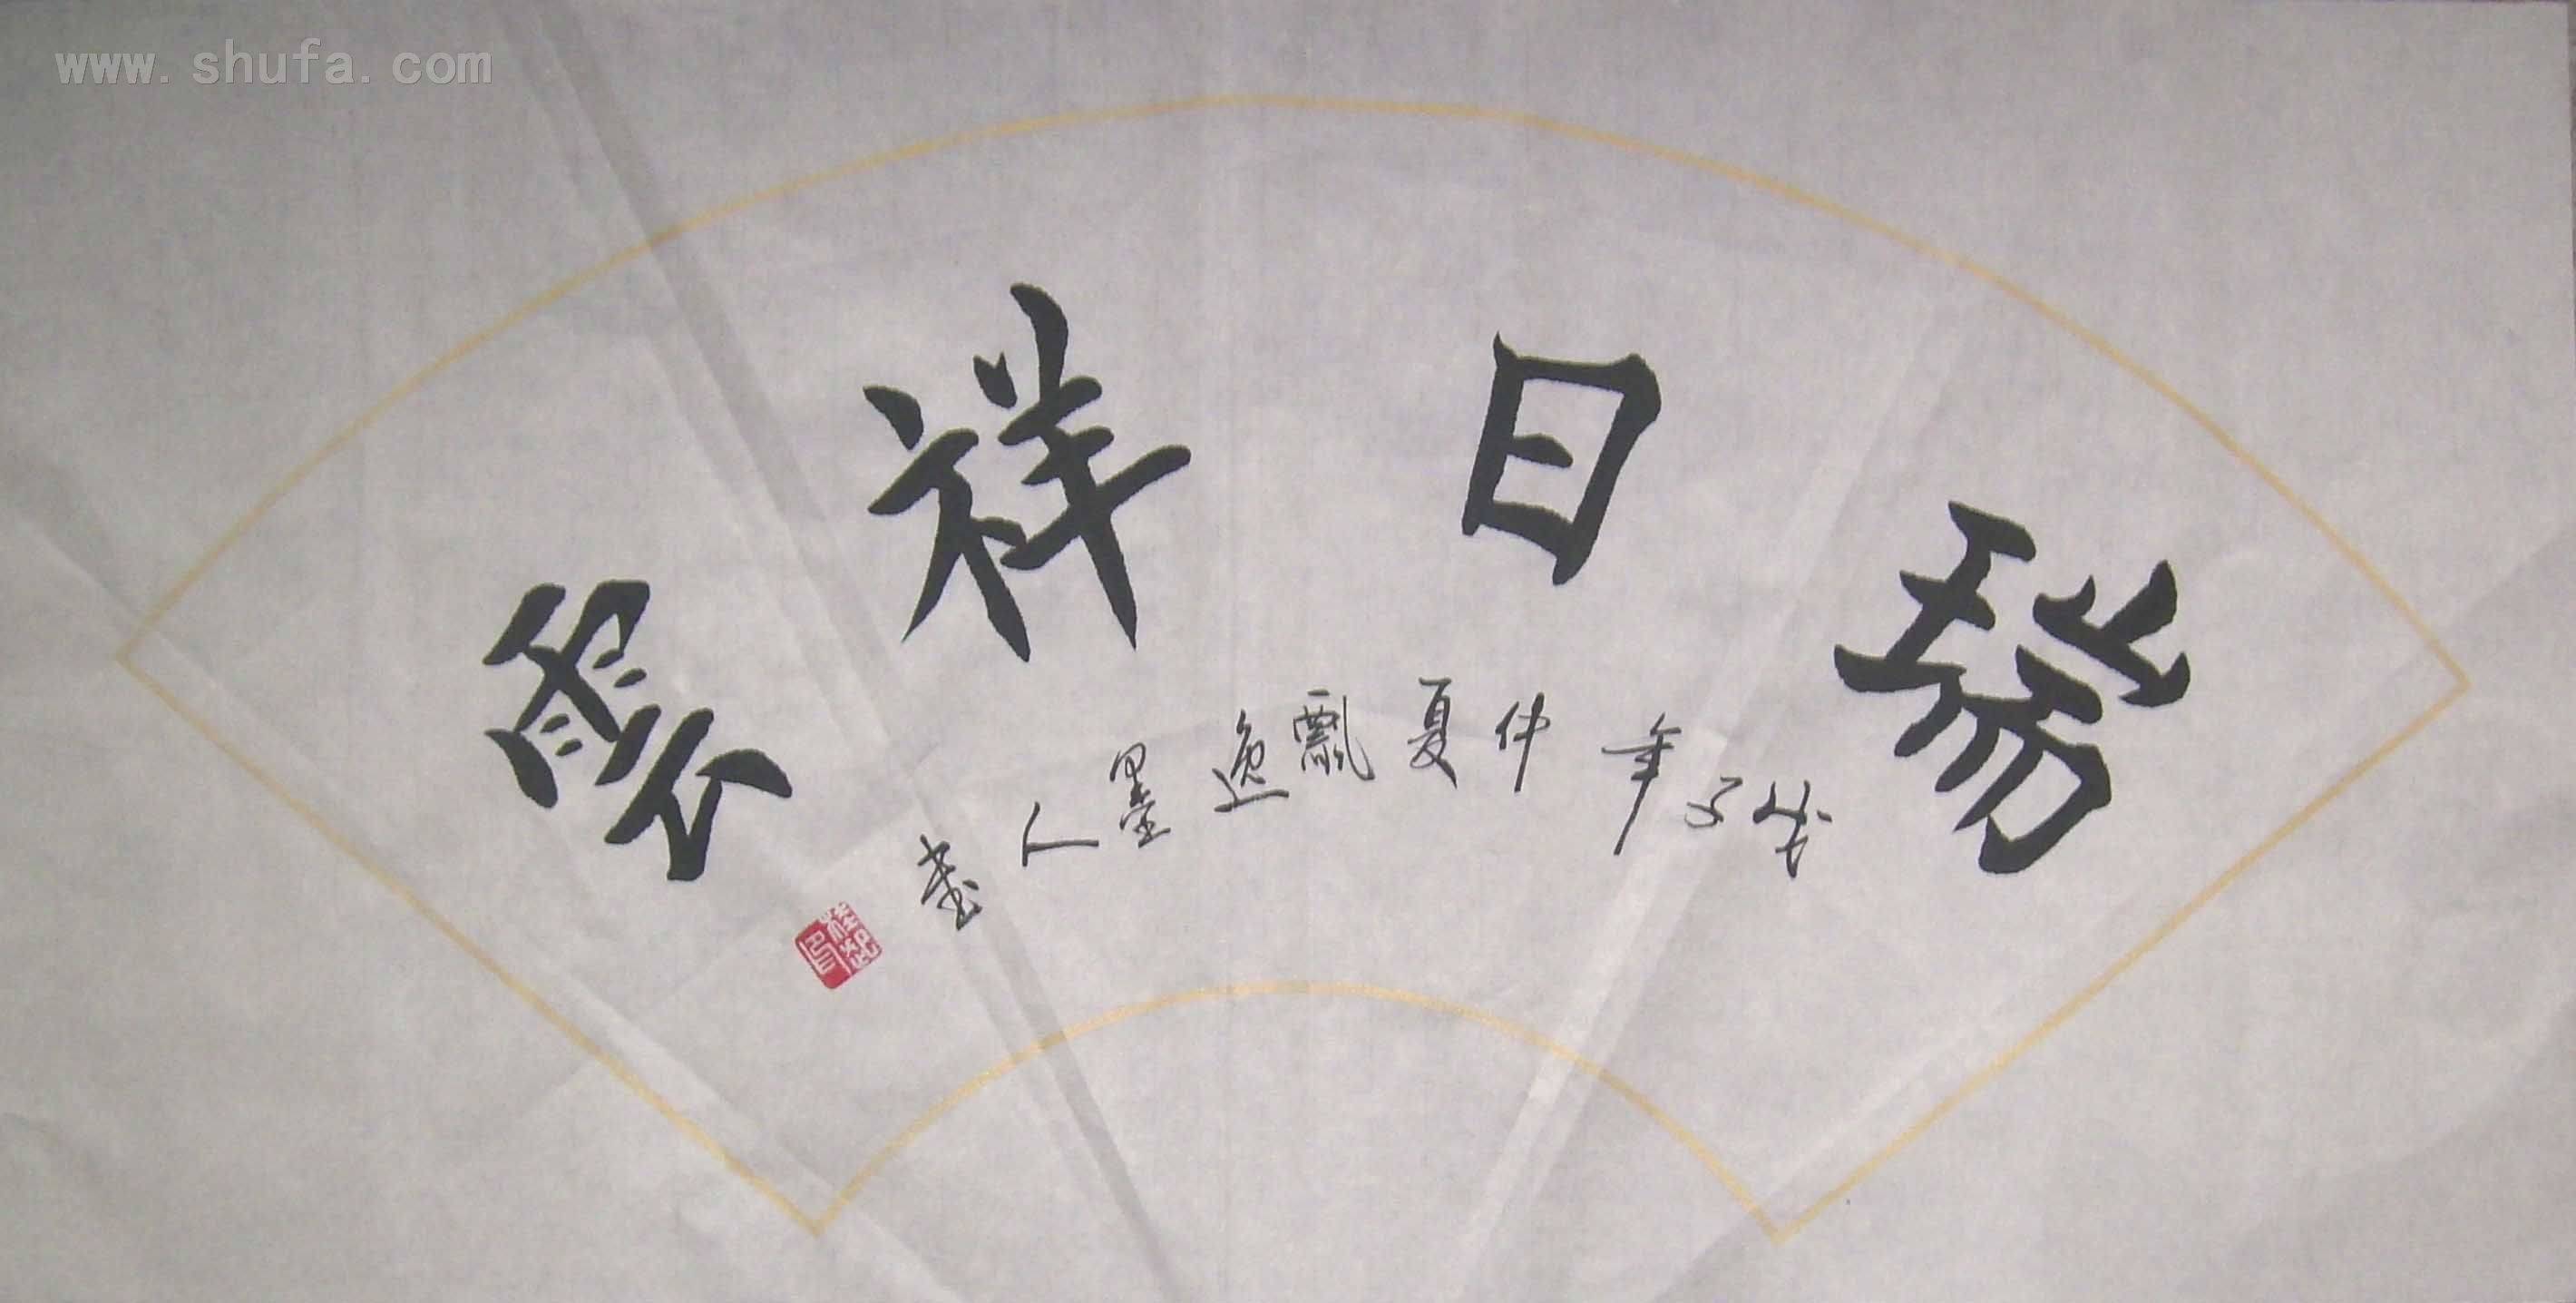 www.shufa.com
瑞日祥雲
戊子年仲夏飄逸墨人書